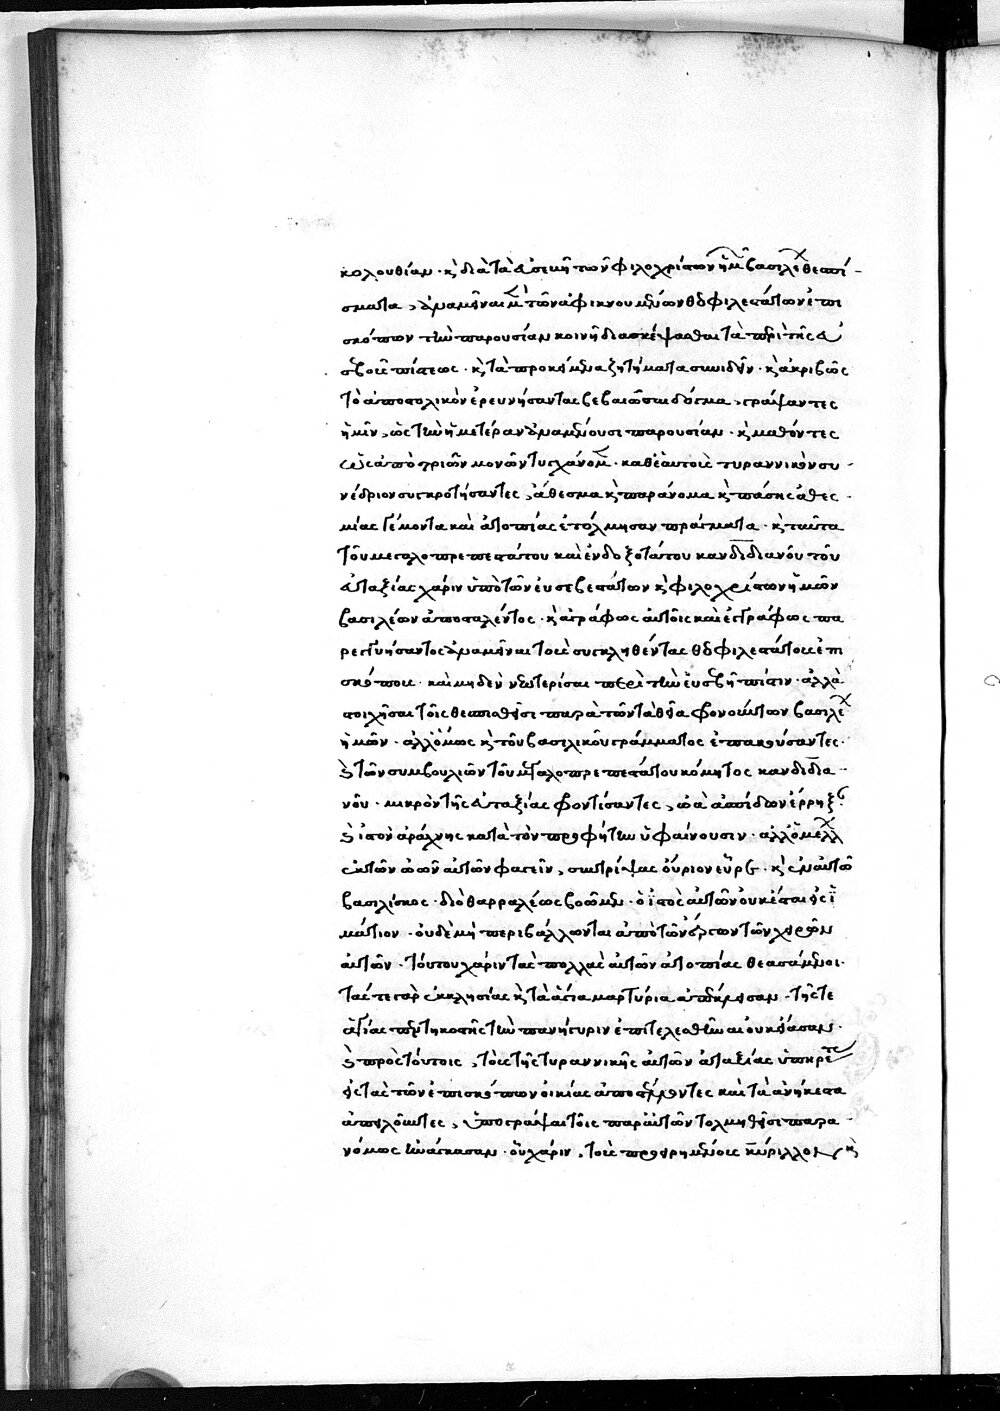 κολουθίαν · κ διὰ τὰ εὐσεβῆ τῶν φιλοχρίστων ἡμ βασιλε θεσπί-
σματα, ἀναμεῖναι μ τῶν ἀφικνουμένων θεοφιλεστάτων ἐπι
σκόπων τὴν παρουσίαν κοινῇ διασκέψασθαι τὰ περὶ τῆς εὐ
σεβοῦς πίστεως · κ τὰ προκείμενα ζητήματα συνιδεῖν · κ ἀκριβῶς
τὸ ἀποστολικὸν ἐρευνήσαντας βεβαιῶσαι δόγμα, γράψαντες
ἡμῖν, ὡς τὴν ἡμετέραν ἀναμένουσι παρουσίαν · κ μαθόντες
ὡς ἀπὸ τριῶν μονῶν τυγχάνομ · καθ ἑαυτοὺς τυραννικὸν συ-
νέδριον συγκροτήσαντες, ἄθεσμα κ παράνομα κ πάσης ἀθεσ-
μίας γέμοντα καὶ ἀτοπίας ἐτόλμησαν πράγματα · κ ταῦτα
τοῦ μεγαλοπρεπεστάτου καὶ ἐνδοξοτάτου κανδιδιανοῦ τοῦ
εὐταξίας χάριν ὑπὸ τῶν εὐσεβεστάτων κ φιλοχρίστων ἡμῶν
βασιλέων ἀποσταλέντος · κ ἀγράφως αὐτοῖς καὶ ἐγγράφως πα
ρεγγυήσαντος ἀναμεῖναι τοὺς συγκληθέντας θεοφιλεστάτους ἐπι
σκόπους · καὶ μηδὲν νεωτερίσαι περὶ τὴν εὐσεβῆ πίστιν · ἀλλὰ
στοιχῆσαι τοῖς θεσπισθεῖσι παρὰ τῶν τὰ θεῖα φρονούντων βασιλε
ἡμῶν · ἀλλ ὅμως κ τοῦ βασιλικοῦ γράμματος ἐπακούσαντες ·
κ τῶν συμβουλιῶν τοῦ μεγαλοπρεπεστάτου κόμητος κανδιδια-
νοῦ · μικρὸν τῆς εὐταξίας φροντίσαντες, ὠὰ ἀσπίδων ἔρρηξ
κ ἱστὸν ἀράχνης κατὰ τὸν προφήτην ὑφαίνουσιν · ἀλλ ὁ μέλλ
ἐκ τῶν ὠῶν αὐτῶν φαγεῖν, συντρίψας οὔριον εὗρε · κ ἐν αὐτῶ
βασιλίσκος · διὸ θαρραλέως βοῶμεν · ὁ ἱστὸς αὐτῶν οὐκ ἔσται εἰς ἱ
μάτιον · οὐδὲ μὴ περιβάλλωνται ἀπὸ τῶν ἔργων τῶν χειρῶν
αὐτῶν · τούτου χάριν τὰς πολλὰς αὐτῶν ἀτοπίας θεασάμενοι ·
τάς τε γὰρ ἐκκλησίας κ τὰ ἅγια μαρτύρια ἀπέκλεισαν · τῆς τε
ἁγίας πεντηκοστῆς τὴν πανήγυριν ἐπιτελεσθῆναι οὐκ εἴασαν ·
κ πρὸς τούτοις, τοὺς τῆς τυραννικῆς αὐτῶν ἀταξίας ὑπηρέτας
εἰς τὰς τῶν ἐπισκόπων οἰκίας ἀποστείλαντες καὶ τὰ ἀνήκεστα
ἀπειλοῦντες, ὑπογράψαι τοῖς παρ αὐτῶν τολμηθεῖσι παρα-
νόμως ἠνάγκασαν · οὗ χάριν, τοὺς προειρημένους κύριλλον κ